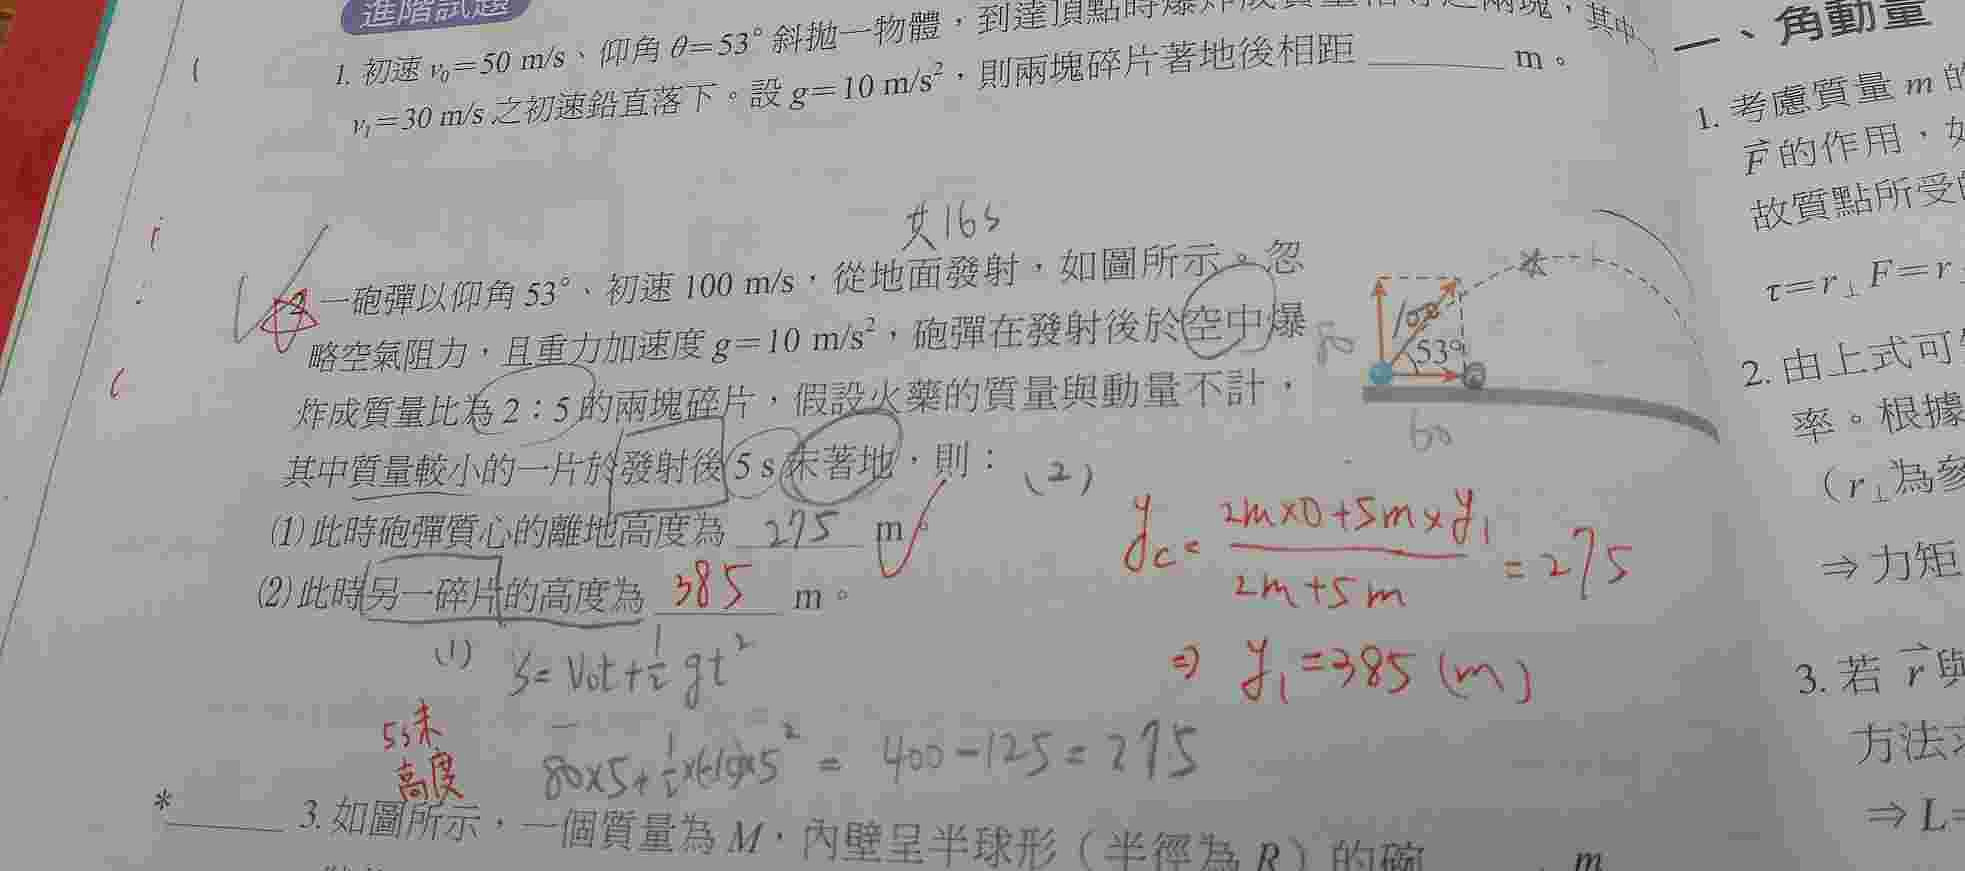 進階試題
1. 初速 v₀=50 m/s、仰角 θ=53° 斜拋一物體，到達頂點時爆炸成質量相等之兩塊，其中
v₁=30 m/s 之初速鉛直落下。設 g=10 m/s²，則兩塊碎片著地後相距 ______ m。
共16s
2. 一砲彈以仰角 53°、初速 100 m/s，從地面發射，如圖所示。忽
略空氣阻力，且重力加速度 g=10 m/s²，砲彈在發射後於空中爆
炸成質量比為 2：5 的兩塊碎片，假設火藥的質量與動量不計，
其中質量較小的一片於發射後 5 s 末著地，則：
(1) 此時砲彈質心的離地高度為 275 m。
(2) 此時另一碎片的高度為 385 m。
100
80
53°
60
(2)
yc = 2m×0+5m×y₁ / 2m+5m = 275
⇒ y₁=385 (m)
(1) S= V₀t+½gt²
5s末
高度
80×5+½×(-10)×5² = 400-125=275
* 3. 如圖所示，一個質量為 M，內壁呈半球形（半徑為 R）的碗
m
一、角動量
1. 考慮質量 m 的
F⃗ 的作用，如
故質點所受的
τ=r⊥F=r
2. 由上式可知
率。根據
（r⊥為參
⇒ 力矩
3. 若 r⃗ 與
方法求
⇒ L=